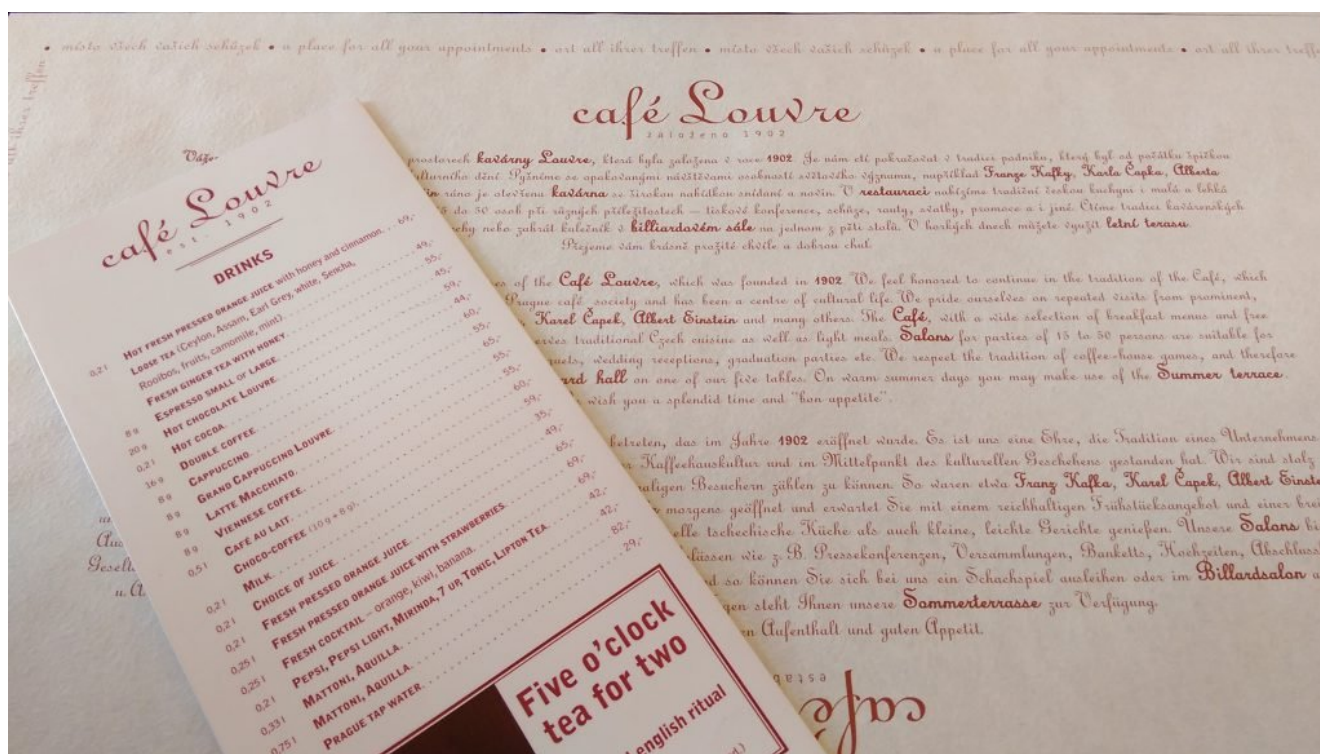 • místo všech vašich schůzek • a place for all your appointments • ort all ihrer treffen • místo všech vašich schůzek • a place for all your appointments • ort all ihrer treffen
ihrer treffen
café Louvre
založeno 1902
Váže
prostorech kavárny Louvre, která byla založena v roce 1902. Je nám ctí pokračovat v tradici podniku, který byl od počátku špičkou
kulturního dění. Pyšníme se opakovanými návštěvami osobností světového významu, například Franze Kafky, Karla Čapka, Alberta
ráno je otevřena kavárna se širokou nabídkou snídaní a novin. V restauraci nabízíme tradiční českou kuchyni i malá a lehká
do 50 osob při různých příležitostech – tiskové konference, schůze, rauty, svatby, promoce a i jiné. Ctíme tradici kavárenských
nebo zahrát kulečník v billiardovém sále na jednom z pěti stolů. V horkých dnech můžete využít letní terasu.
Přejeme vám krásně prožité chvíle a dobrou chuť.
of the Café Louvre, which was founded in 1902. We feel honored to continue in the tradition of the Café, which
Prague café society and has been a centre of cultural life. We pride ourselves on repeated visits from prominent,
Karel Čapek, Albert Einstein and many others. The Café, with a wide selection of breakfast menus and free
erves traditional Czech cuisine as well as light meals. Salons for parties of 15 to 50 persons are suitable for
quets, wedding receptions, graduation parties etc. We respect the tradition of coffee-house games, and therefore
ard hall on one of our five tables. On warm summer days you may make use of the Summer terrace.
wish you a splendid time and "bon appetite".
betreten, das im Jahre 1902 eröffnet wurde. Es ist uns eine Ehre, die Tradition eines Unternehmens
Kaffeehauskultur und im Mittelpunkt des kulturellen Geschehens gestanden hat. Wir sind stolz
aligen Besuchern zählen zu können. So waren etwa Franz Kafka, Karel Čapek, Albert Einste
morgens geöffnet und erwartet Sie mit einem reichhaltigen Frühstücksangebot und einer brei
elle tschechische Küche als auch kleine, leichte Gerichte genießen. Unsere Salons bi
lässen wie z. B. Pressekonferenzen, Versammlungen, Banketts, Hochzeiten, Abschluss
d so können Sie sich bei uns ein Schachspiel ausleihen oder im Billardsalon a
gen steht Ihnen unsere Sommerterrasse zur Verfügung.
en Aufenthalt und guten Appetit.
Aus
Gesell
u. A
café
estab
café Louvre
est. 1902
DRINKS
0,2 l HOT FRESH PRESSED ORANGE JUICE with honey and cinnamon. 69,-
LOOSE TEA (Ceylon, Assam, Earl Grey, white, Sencha, 49,-
Rooibos, fruits, camomile, mint).
FRESH GINGER TEA WITH HONEY. 55,-
8 g ESPRESSO SMALL OR LARGE. 45,-
20 g HOT CHOCOLATE LOUVRE. 59,-
0,2 l HOT COCOA. 44,-
16 g DOUBLE COFFEE. 60,-
8 g CAPPUCCINO. 55,-
8 g GRAND CAPPUCCINO LOUVRE. 65,-
8 g LATTE MACCHIATO. 55,-
8 g VIENNESE COFFEE. 60,-
0,5 l CAFÉ AU LAIT. 59,-
CHOCO-COFFEE (10 g + 8 g). 35,-
0,2 l MILK. 49,-
0,2 l CHOICE OF JUICE. 65,-
0,2 l FRESH PRESSED ORANGE JUICE. 69,-
0,25 l FRESH PRESSED ORANGE JUICE WITH STRAWBERRIES. 69,-
0,25 l FRESH COCKTAIL – orange, kiwi, banana. 42,-
0,2 l PEPSI, PEPSI LIGHT, MIRINDA, 7 UP, TONIC, LIPTON TEA. 42,-
0,33 l MATTONI, AQUILLA. 82,-
0,75 l MATTONI, AQUILLA. 29,-
PRAGUE TAP WATER.
Five o'clock
tea for two
english ritual